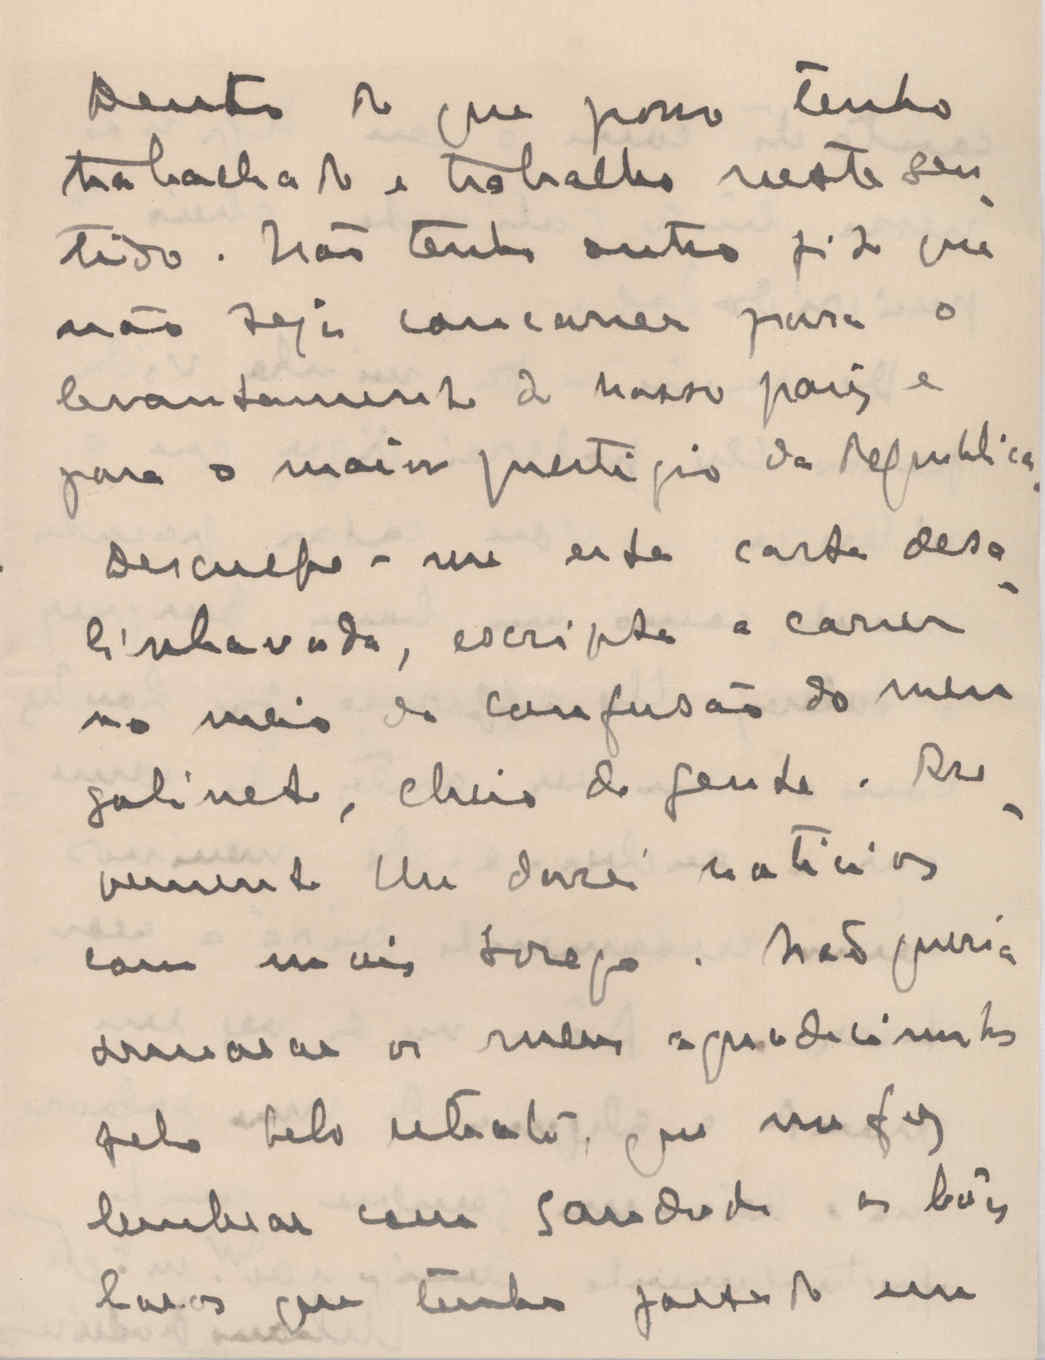 Dentro do que posso tenho
trabalhado e trabalho neste sen-
tido. Não tenho outro fito que
não seja concorrer para o
levantamento do nosso paiz e
para o maior prestigio da Republica.
Desculpe-me esta carta desa-
linhavada, escripta a correr
no meio da confusão do meu
gabinete, cheio de gente. Bre-
vemente lhe darei noticias
com mais socego. Não queria
demorar os meus agradecimentos
pelo belo retrato, que me fez
lembrar com saudade as bôas
horas que tenho passado em